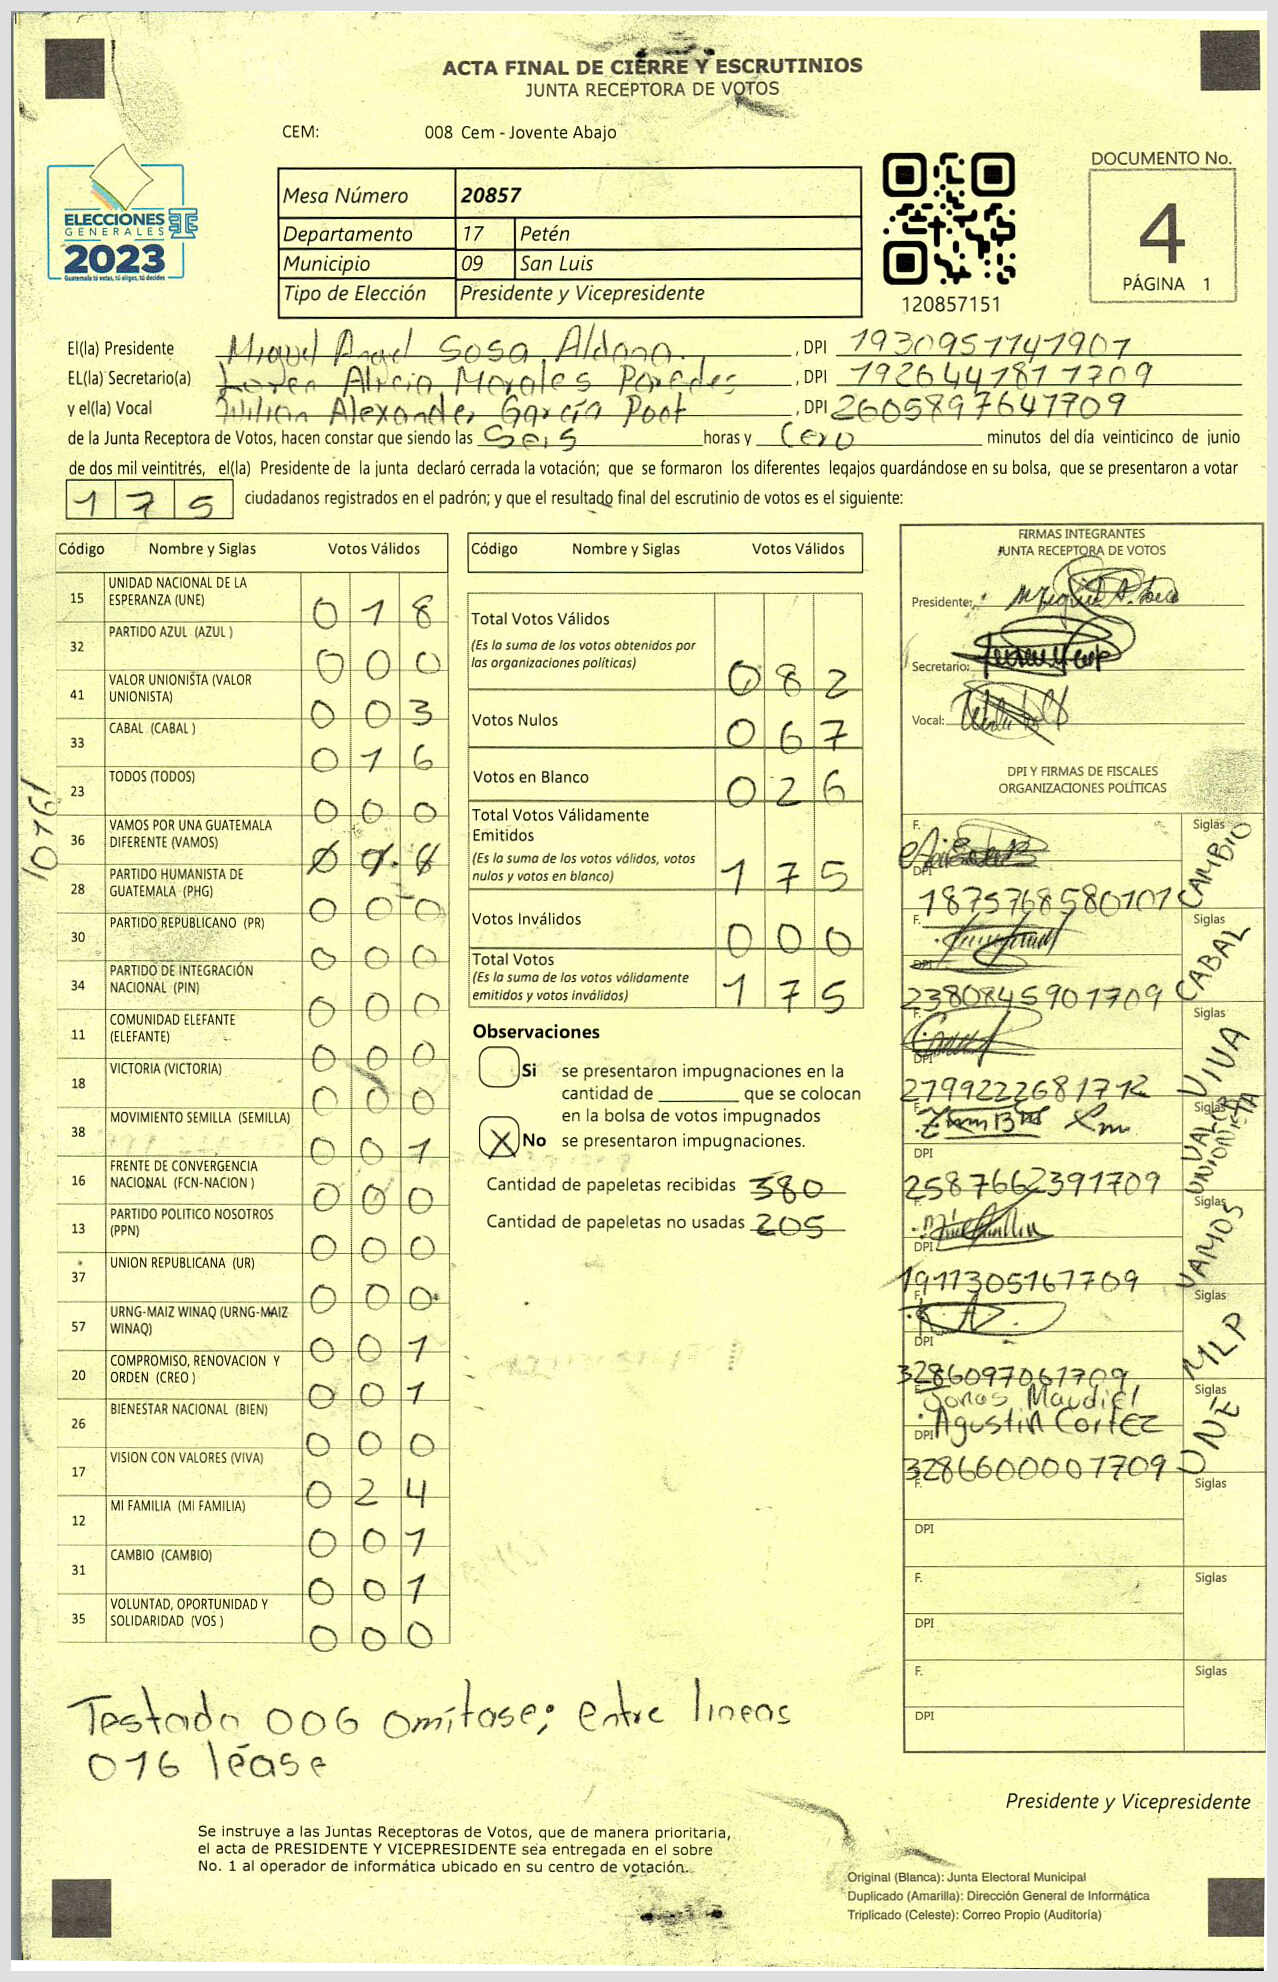 ACTA FINAL DE CIERRE Y ESCRUTINIOS
JUNTA RECEPTORA DE VOTOS
CEM: 008 Cem - Jovente Abajo
DOCUMENTO No.
4
PÁGINA 1
ELECCIONES
GENERALES
2023
Guatemala tú votas, tú eliges, tú decides
Mesa Número 20857
Departamento 17 Petén
Municipio 09 San Luis
Tipo de Elección Presidente y Vicepresidente
120857151
El(la) Presidente Miguel Angel Sosa Aldana. , DPI 1930951141901
EL(la) Secretario(a) Loren Alicia Morales Paredes , DPI 1926441811709
y el(la) Vocal Alexander García Poot , DPI 2605897641709
de la Junta Receptora de Votos, hacen constar que siendo las Seis horas y Cero minutos del día veinticinco de junio
de dos mil veintitrés, el(la) Presidente de la junta declaró cerrada la votación; que se formaron los diferentes legajos guardándose en su bolsa, que se presentaron a votar
175 ciudadanos registrados en el padrón; y que el resultado final del escrutinio de votos es el siguiente:
Código Nombre y Siglas Votos Válidos
15 UNIDAD NACIONAL DE LA ESPERANZA (UNE) 018
32 PARTIDO AZUL (AZUL ) 000
41 VALOR UNIONISTA (VALOR UNIONISTA) 003
33 CABAL (CABAL ) 016
23 TODOS (TODOS) 000
016
36 VAMOS POR UNA GUATEMALA DIFERENTE (VAMOS)
28 PARTIDO HUMANISTA DE GUATEMALA (PHG) 000
30 PARTIDO REPUBLICANO (PR) 000
34 PARTIDO DE INTEGRACIÓN NACIONAL (PIN) 000
11 COMUNIDAD ELEFANTE (ELEFANTE) 000
18 VICTORIA (VICTORIA) 000
38 MOVIMIENTO SEMILLA (SEMILLA) 001
16 FRENTE DE CONVERGENCIA NACIONAL (FCN-NACION ) 000
13 PARTIDO POLITICO NOSOTROS (PPN) 000
37 UNION REPUBLICANA (UR) 000
57 URNG-MAIZ WINAQ (URNG-MAIZ WINAQ) 001
20 COMPROMISO, RENOVACION Y ORDEN (CREO ) 001
26 BIENESTAR NACIONAL (BIEN) 000
17 VISION CON VALORES (VIVA) 024
12 MI FAMILIA (MI FAMILIA) 001
31 CAMBIO (CAMBIO) 001
35 VOLUNTAD, OPORTUNIDAD Y SOLIDARIDAD (VOS ) 000
Código Nombre y Siglas Votos Válidos
Total Votos Válidos
(Es la suma de los votos obtenidos por
las organizaciones políticas) 082
Votos Nulos 067
Votos en Blanco 026
Total Votos Válidamente
Emitidos
(Es la suma de los votos válidos, votos
nulos y votos en blanco) 175
Votos Inválidos 000
Total Votos
(Es la suma de los votos válidamente
emitidos y votos inválidos) 175
Observaciones
Si se presentaron impugnaciones en la
cantidad de ________ que se colocan
en la bolsa de votos impugnados
X No se presentaron impugnaciones.
Cantidad de papeletas recibidas 380
Cantidad de papeletas no usadas 205
FIRMAS INTEGRANTES
JUNTA RECEPTORA DE VOTOS
Presidente:
Secretario:
Vocal:
DPI Y FIRMAS DE FISCALES
ORGANIZACIONES POLÍTICAS
F. Siglas CAMBIO
DPI 1875768580101
F. Siglas CABAL
DPI 2380845901709
F. Siglas VIVA
DPI 2799222681712
Siglas VALOR UNIONISTA
DPI 2587662391709
F. Siglas VAMOS
DPI 1911305161709
F. Siglas MLP
DPI 3286097061709
F. Jonas Maudiel Siglas UNE
Agustin Cortez
DPI 3286600001709
F. Siglas
DPI
F. Siglas
DPI
F. Siglas
DPI
Testado 006 omítase; entre lineas
016 léase
Presidente y Vicepresidente
Se instruye a las Juntas Receptoras de Votos, que de manera prioritaria,
el acta de PRESIDENTE Y VICEPRESIDENTE sea entregada en el sobre
No. 1 al operador de informática ubicado en su centro de votación.
Original (Blanca): Junta Electoral Municipal
Duplicado (Amarilla): Dirección General de Informática
Triplicado (Celeste): Correo Propio (Auditoría)